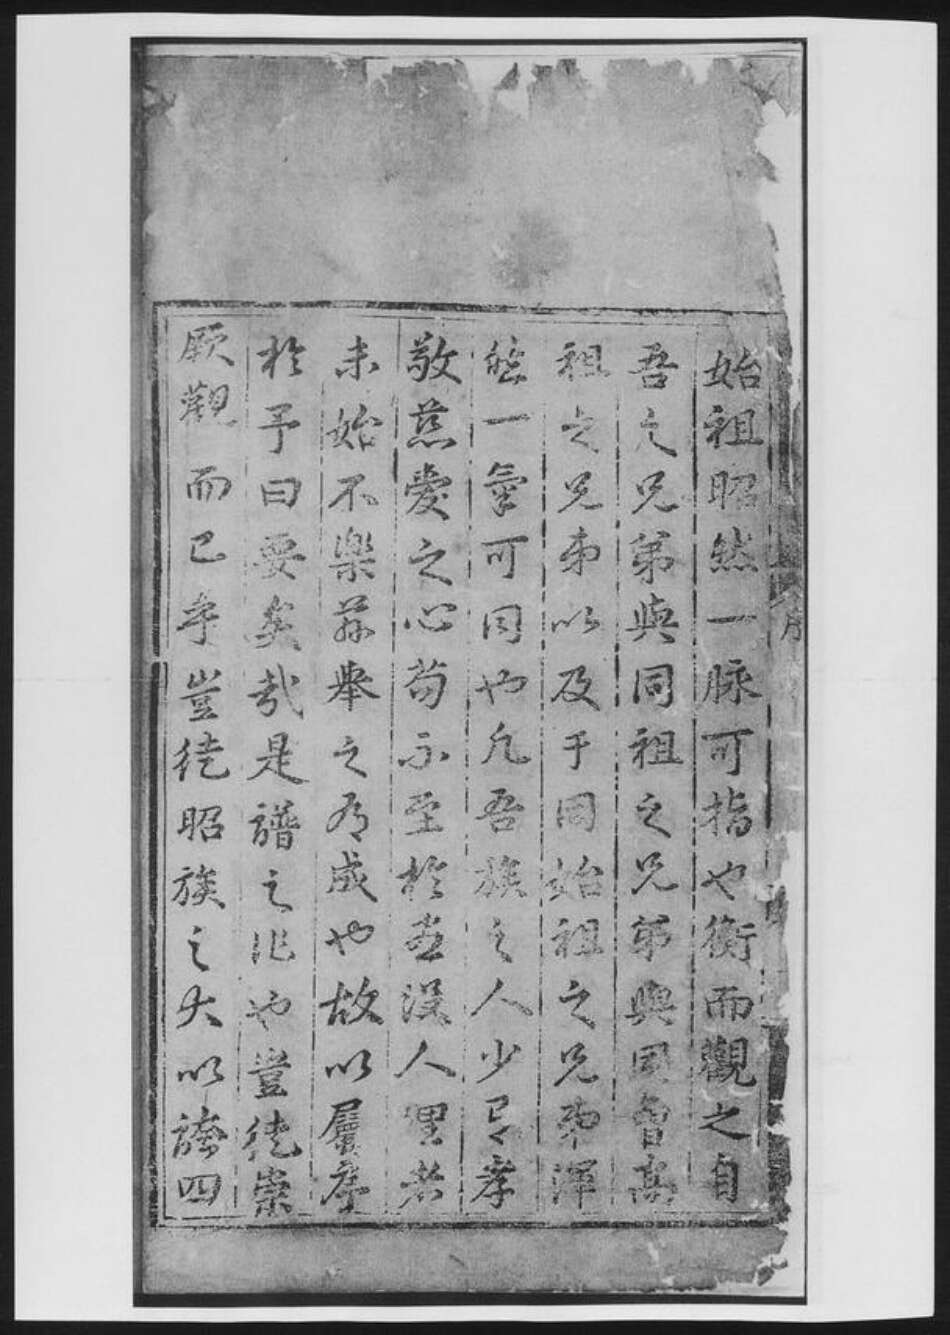 始祖昭然一脉可指也衡而觀之自
吾之兄弟與同祖之兄弟與同曾高
祖之兄弟以及于同始祖之兄弟渾
然一氣可同也凡吾族之人少有孝
敬慈愛之心苟不至於虐没人理者
未始不樂茲舉之有成也故以屬序
於予曰要矣哉是譜之作也豈徒崇
厥觀而已乎豈徒昭族之大以誇四
序